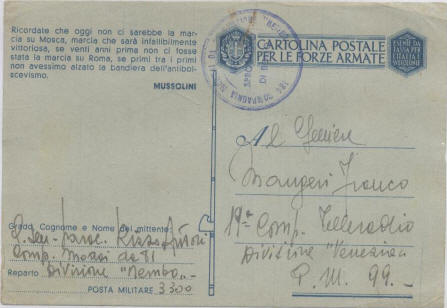 Ricordate che oggi non ci sarebbe la mar-
cia su Mosca, marcia che sarà infallibilmente
vittoriosa, se venti anni prima non ci fosse
stata la marcia su Roma, se primi tra i primi
non avessimo alzato la bandiera dell'antibol-
scevismo.
MUSSOLINI
CARTOLINA POSTALE
PER LE FORZE ARMATE
ESENTE DA
TASSA PER
L'ITALIA E
184 COMPAGNIA
Al Geniere
Franco
Comp. Teleradio
Divisione "Venezia"
P. M. 99.-
Grado, Cognome e Nome del mittente
Comp. da 81
Reparto Divisione "Nembo"-
POSTA MILITARE 3300